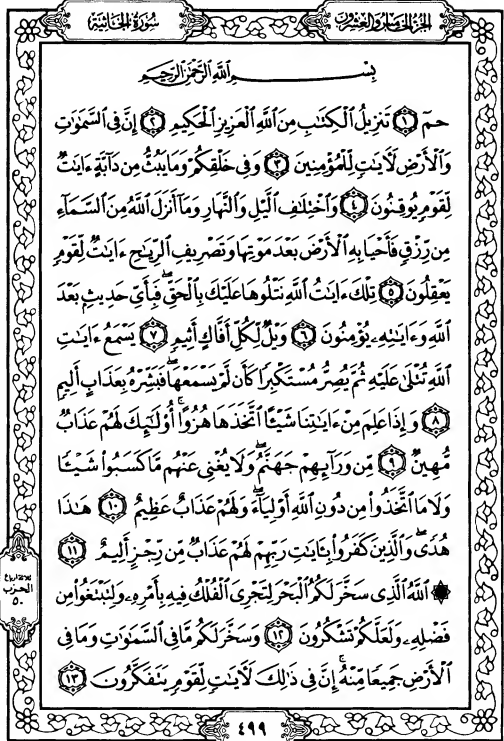 سُورَةُ الجَاثِيَةِ
الجزء الخامس والعشرون
بِسْمِ اللَّهِ الرَّحْمَٰنِ الرَّحِيمِ
حمٓ ١ تَنزِيلُ الْكِتَٰبِ مِنَ اللَّهِ الْعَزِيزِ الْحَكِيمِ ٢ إِنَّ فِى السَّمَٰوَٰتِ
وَالْأَرْضِ لَءَايَٰتٍ لِّلْمُؤْمِنِينَ ٣ وَفِى خَلْقِكُمْ وَمَا يَبُثُّ مِن دَآبَّةٍ ءَايَٰتٌ
لِّقَوْمٍ يُوقِنُونَ ٤ وَاخْتِلَٰفِ الَّيْلِ وَالنَّهَارِ وَمَآ أَنزَلَ اللَّهُ مِنَ السَّمَآءِ
مِن رِّزْقٍ فَأَحْيَا بِهِ الْأَرْضَ بَعْدَ مَوْتِهَا وَتَصْرِيفِ الرِّيَٰحِ ءَايَٰتٌ لِّقَوْمٍ
يَعْقِلُونَ ٥ تِلْكَ ءَايَٰتُ اللَّهِ نَتْلُوهَا عَلَيْكَ بِالْحَقِّ ۖ فَبِأَىِّ حَدِيثٍ بَعْدَ
اللَّهِ وَءَايَٰتِهِۦ يُؤْمِنُونَ ٦ وَيْلٌ لِّكُلِّ أَفَّاكٍ أَثِيمٍ ٧ يَسْمَعُ ءَايَٰتِ
اللَّهِ تُتْلَىٰ عَلَيْهِ ثُمَّ يُصِرُّ مُسْتَكْبِرًا كَأَن لَّمْ يَسْمَعْهَا ۖ فَبَشِّرْهُ بِعَذَابٍ أَلِيمٍ
٨ وَإِذَا عَلِمَ مِنْ ءَايَٰتِنَا شَيْـًٔا اتَّخَذَهَا هُزُوًا ۚ أُو۟لَٰٓئِكَ لَهُمْ عَذَابٌ
مُّهِينٌ ٩ مِّن وَرَآئِهِمْ جَهَنَّمُ ۖ وَلَا يُغْنِى عَنْهُم مَّا كَسَبُوا۟ شَيْـًٔا
وَلَا مَا اتَّخَذُوا۟ مِن دُونِ اللَّهِ أَوْلِيَآءَ ۖ وَلَهُمْ عَذَابٌ عَظِيمٌ ١٠ هَٰذَا
هُدًى ۖ وَالَّذِينَ كَفَرُوا۟ بِـَٔايَٰتِ رَبِّهِمْ لَهُمْ عَذَابٌ مِّن رِّجْزٍ أَلِيمٌ ١١
۞ اللَّهُ الَّذِى سَخَّرَ لَكُمُ الْبَحْرَ لِتَجْرِىَ الْفُلْكُ فِيهِ بِأَمْرِهِۦ وَلِتَبْتَغُوا۟ مِن
فَضْلِهِۦ وَلَعَلَّكُمْ تَشْكُرُونَ ١٢ وَسَخَّرَ لَكُم مَّا فِى السَّمَٰوَٰتِ وَمَا فِى
الْأَرْضِ جَمِيعًا مِّنْهُ ۚ إِنَّ فِى ذَٰلِكَ لَءَايَٰتٍ لِّقَوْمٍ يَتَفَكَّرُونَ ١٣
ثلاثة أرباع
الحزب
٥٠
٤٩٩